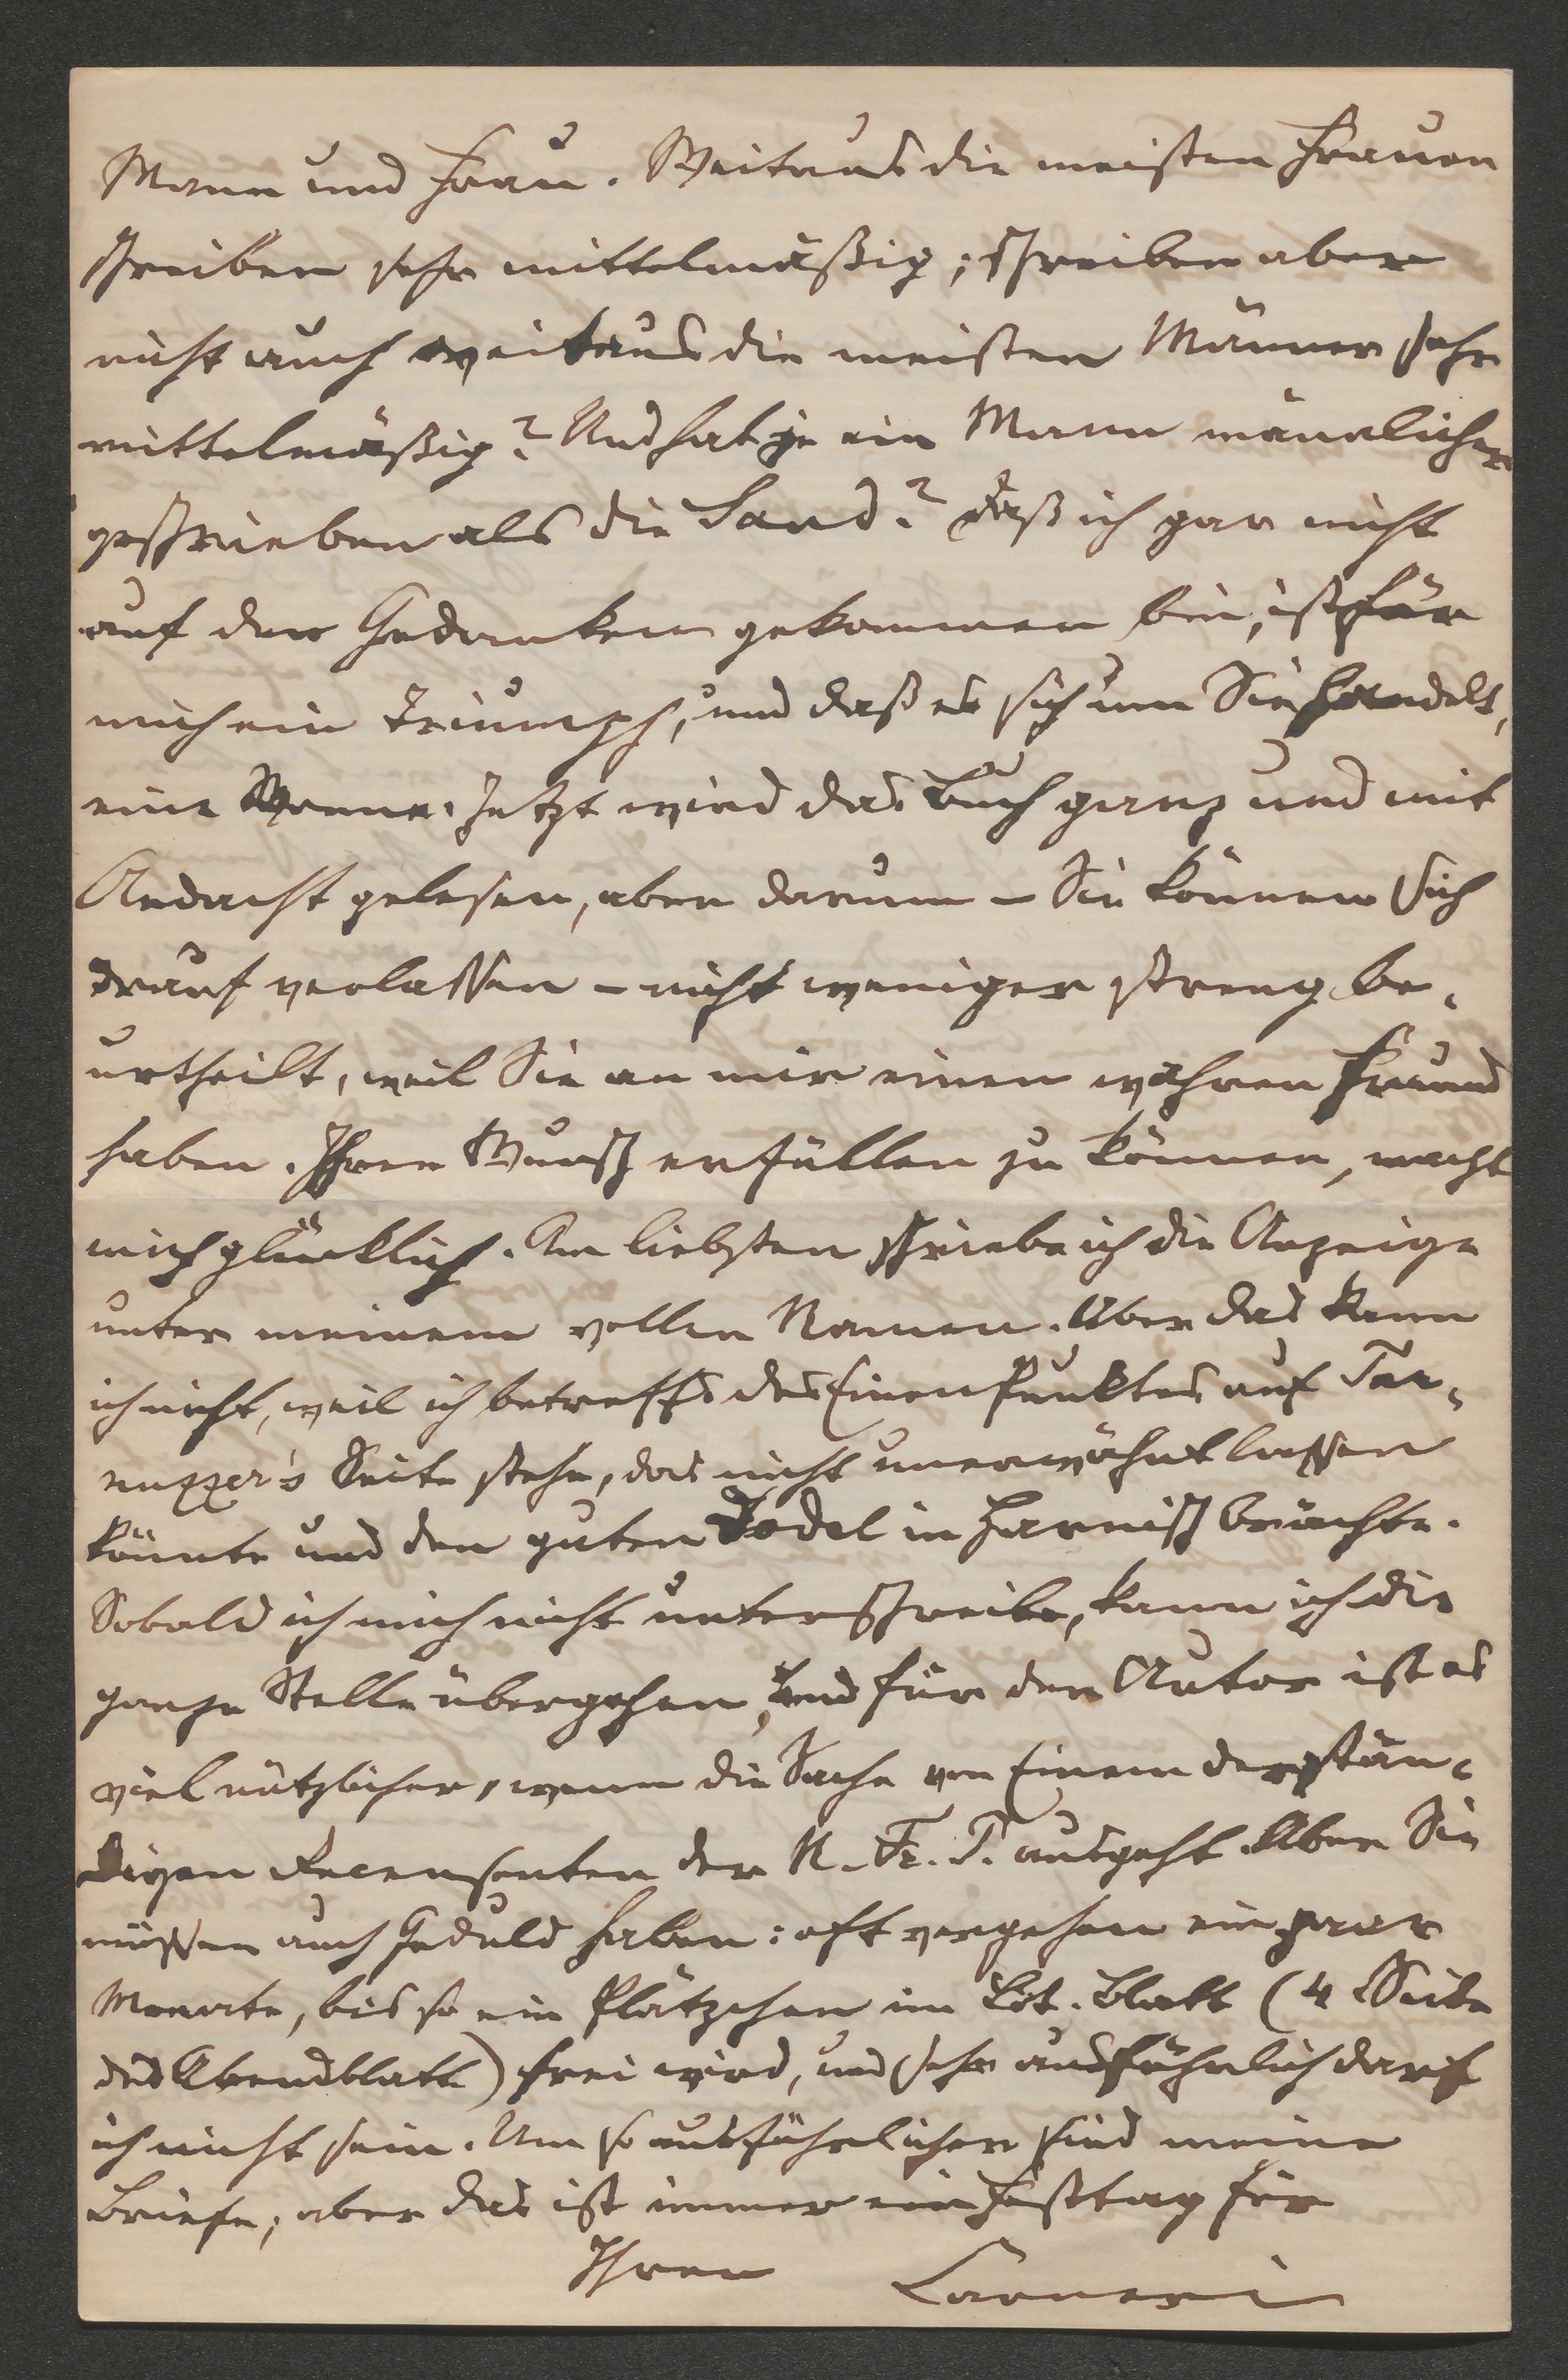 Mann und Frau. Weitaus die meisten Frauen
schreiben sehr mittelmäßig; schreiben aber
nicht auch weitaus die meisten Männer sehr
mittelmäßig? Und hat je ein Mann männlicher
geschrieben als die Sand? Daß ich gar nicht
auf den Gedanken gekommen bin, ist für
mich ein Triumph, und daß es sich um Sie handelt,
eine Wonne. Jetzt wird das Buch ganz und mit
Andacht gelesen, aber darum – Sie können sich
drauf verlassen – nicht weniger streng be-
urtheilt, weil Sie an mir einen wahren Freund
haben. Ihren Wunsch erfüllen zu können, macht
mich glücklich. Am liebsten schriebe ich die Anzeige
unter meinem vollen Namen. Aber das kann
ich nicht, weil ich betreffs des Einen Punktes auf Tar-
nuzzer's Seite stehe, das nicht unerwähnt lassen
könnte und den guten Dodel in Harnisch brächte.
Sobald ich mich nicht unterschreibe, kann ich die
ganze Stelle übergehen, und für den Autor ist es
viel nützlicher, wenn die Sache von Einem der stän-
digen Recensenten der N. Fr. P. ausgeht. Aber Sie
müssen auch Geduld haben: oft vergehen ein paar
Monate, bis so ein Plätzchen im Lit. Blatt (4 Seite
des Abendblatt) frei wird, und sehr ausführlich darf
ich nicht sein. Um so ausführlicher sind meine
Briefe; aber das ist immer ein Festtag für
Ihren Carneri